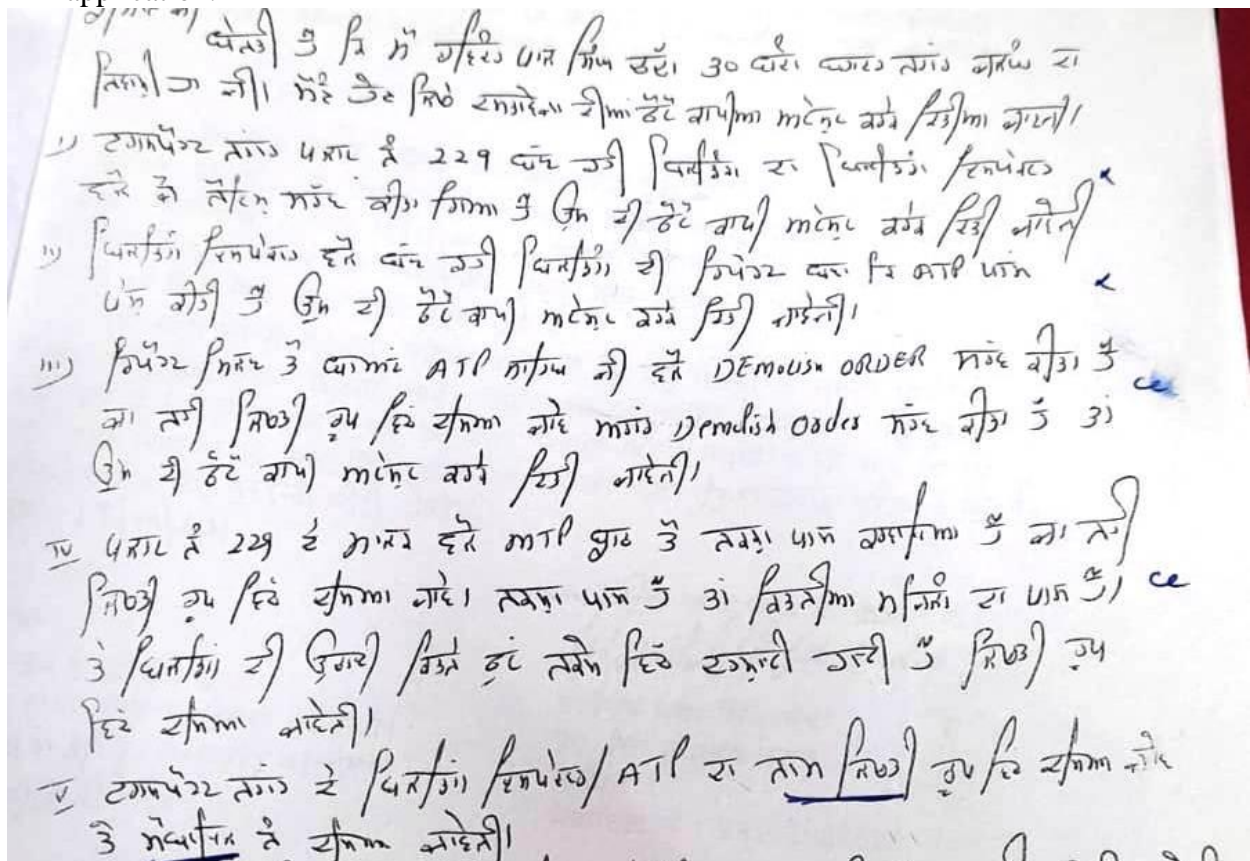 application
ਬੇਨਤੀ ਹੈ ਕਿ ਮੈਂ ਪਾਲ ਸਿੰਘ 30 ਨਗਰ ਦਾ
ਨਿਵਾਸੀ ਹਾਂ ਜੀ। ਮੈਨੂੰ ਹੇਠ ਲਿਖੇ ਦਸਤਾਵੇਜਾ ਦੀਆਂ ਫੋਟੋ ਕਾਪੀਆ ਅਟੇਸਟ ਕਰਕੇ ਦਿੱਤੀਆ ਜਾਣ ਜੀ।
i) ਟਰਾਸਪੋਰਟ ਨਗਰ ਪਲਾਟ ਨੰ 229 ਬਣ ਰਹੀ ਬਿਲਡਿੰਗ ਦਾ ਬਿਲਡਿੰਗ ਇਨਸਪੈਕਟਰ
ਵਲੋ ਜੋ ਨੋਟਿਸ ਸਰਵ ਕੀਤਾ ਗਿਆ ਹੈ ਉਸ ਦੀ ਫੋਟੋ ਕਾਪੀ ਅਟੇਸਟ ਕਰਕੇ ਦਿੱਤੀ ਜਾਵੇ ਜੀ
ii) ਬਿਲਡਿੰਗ ਇਨਸਪੈਕਟਰ ਵਲੋ ਬਣ ਰਹੀ ਬਿਲਡਿੰਗ ਦੀ ਰਿਪੋਰਟ ਬਣਾ ਕਿ ATP ਪਾਸ
ਪੇਸ਼ ਕੀਤੀ ਹੈ ਉਸ ਦੀ ਫੋਟੋ ਕਾਪੀ ਅਟੇਸਟ ਕਰਕੇ ਦਿੱਤੀ ਜਾਵੇ ਜੀ।
iii) ਰਿਪੋਰਟ ਮਿਲਣ ਤੋ ਬਾਅਦ ATP ਸਾਹਿਬ ਜੀ ਵਲੋ DEMOLISH ORDER ਸਰਵ ਕੀਤਾ ਹੈ
ਜਾ ਨਹੀ ਲਿਖਤੀ ਰੂਪ ਵਿਚ ਦੱਸਿਆ ਜਾਵੇ ਅਗਰ Demolish Order ਸਰਵ ਕੀਤਾ ਹੈ ਤਾਂ
ਉਸ ਦੀ ਫੋਟੋ ਕਾਪੀ ਅਟੇਸਟ ਕਰਕੇ ਦਿੱਤੀ ਜਾਵੇ ਜੀ।
IV ਪਲਾਟ ਨੰ 229 ਦੇ ਮਾਲਕ ਵਲੋ MTP ਤੋ ਨਕਸ਼ਾ ਪਾਸ ਕਰਵਾਇਆ ਹੈ ਜਾ ਨਹੀ
ਲਿਖਤੀ ਰੂਪ ਵਿਚ ਦੱਸਿਆ ਜਾਵੇ। ਨਕਸ਼ਾ ਪਾਸ ਹੈ ਤਾਂ ਕਿਤਨੀਆ ਮੰਜਿਲਾਂ ਦਾ ਪਾਸ ਹੈ।
ਤੇ ਬਿਲਡਿੰਗ ਦੀ ਉਚਾਈ ਕਿਤਨੇ ਫੁੱਟ ਨਕਸ਼ੇ ਵਿਚ ਦਰਸਾਈ ਗਈ ਹੈ ਲਿਖਤੀ ਰੂਪ
ਵਿਚ ਦੱਸਿਆ ਜਾਵੇ ਜੀ।
V ਟਰਾਸਪੋਰਟ ਨਗਰ ਦੇ ਬਿਲਡਿੰਗ ਇਨਸਪੈਕਟਰ/ATP ਦਾ ਨਾਮ ਲਿਖਤੀ ਰੂਪ ਵਿਚ ਦੱਸਿਆ ਜਾਵੇ
ਤੇ ਮੋਬਾਇਲ ਨੰ ਦੱਸਿਆ ਜਾਵੇ ਜੀ।